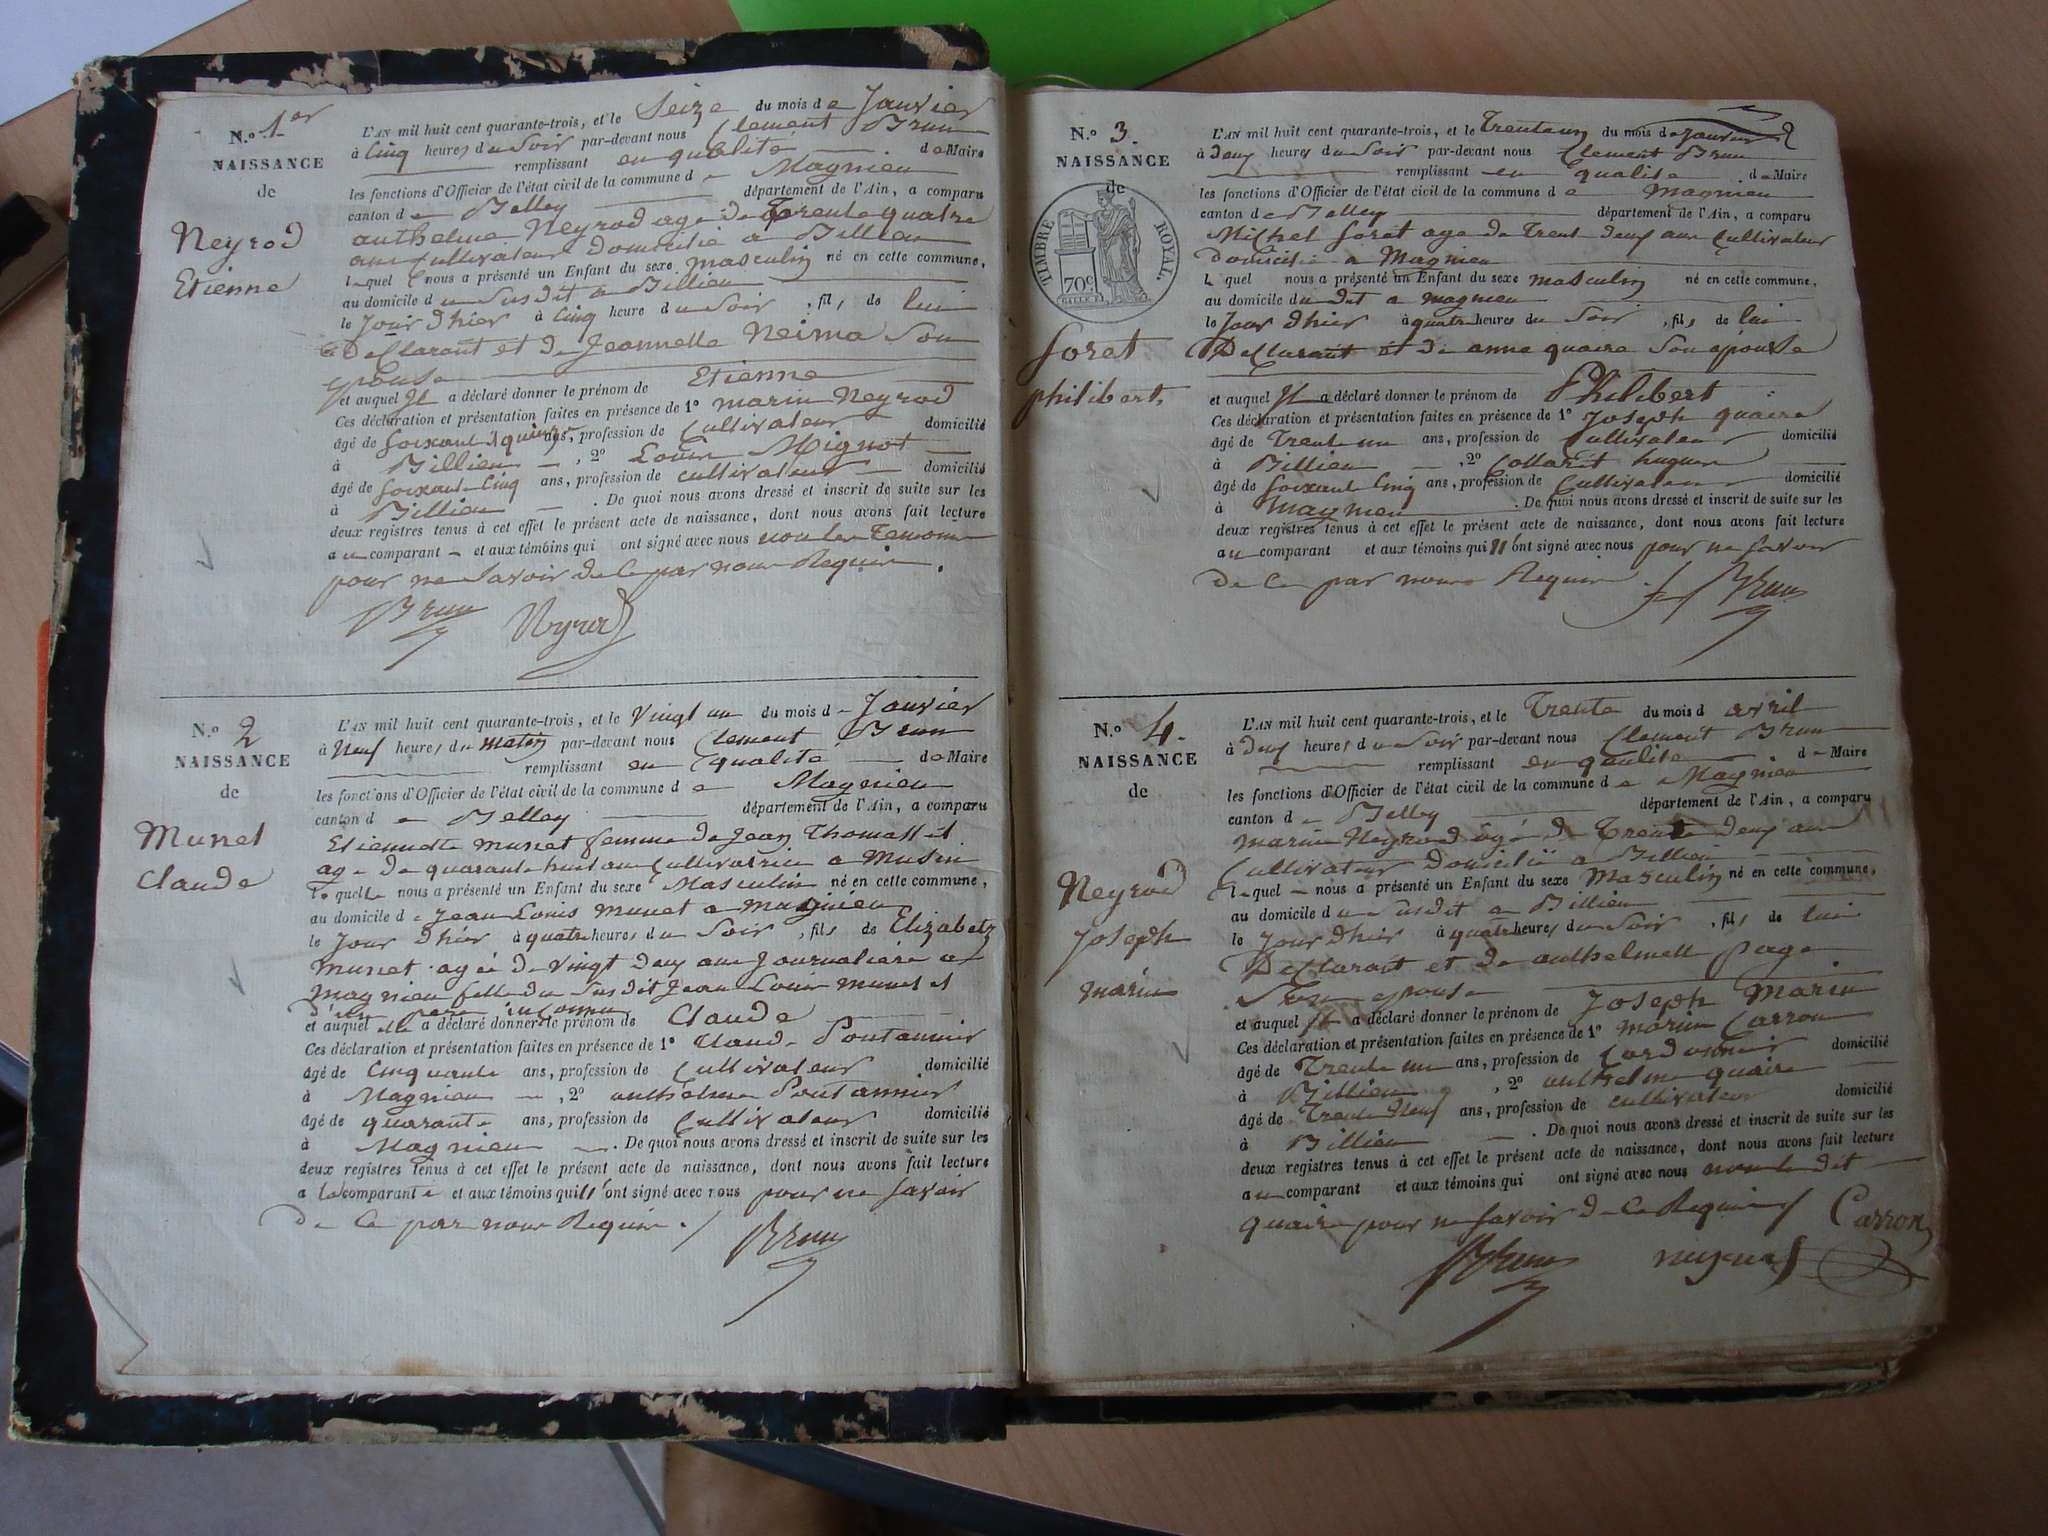 N.o 1er
NAISSANCE
de
Neyrod
Etienne
L'AN mil huit cent quarante-trois, et le Seize du mois de Janvier
à Cinq heures du Soir par-devant nous Clement Brun
remplissant en qualité de Maire
les fonctions d'Officier de l'état civil de la commune de Magnieu
canton de Belley département de l'Ain, a comparu
anthelme Neyrod age de Trente quatre
ans Cultivateur Domicilié a Billieu
lequel nous a présenté un Enfant du sexe masculin né en cette commune,
au domicile du Susdit a Billieu
le Jour dhier à Cinq heure du Soir, fils de lui
Declarant et de Jeannette Neima Son
epouse
et auquel Il a déclaré donner le prénom de Etienne
Ces déclaration et présentation faites en présence de 1o marin Neyrod
âgé de Soixante quinze ans, profession de Cultivateur domicilié
à Billieu, 2o Louis Mignot
âgé de Soixante Cinq ans, profession de cultivateur domicilié
à Billieu. De quoi nous avons dressé et inscrit de suite sur les
deux registres tenus à cet effet le présent acte de naissance, dont nous avons fait lecture
au comparant et aux témoins qui ont signé avec nous non les Temoins
pour ne Savoir de Ce par nous Requis.
Brun Neyrod
N.o 2
NAISSANCE
de
Munet
Claude
L'AN mil huit cent quarante-trois, et le Vingt un du mois de Janvier
à Neuf heures du matin par-devant nous Clement Brun
remplissant en qualité de Maire
les fonctions d'Officier de l'état civil de la commune de Magnieu
canton de Belley département de l'Ain, a comparu
Etiennette munet femme de Jean Thomasset
age de quarante huit ans Cultivatrice a Musin
lequelle nous a présenté un Enfant du sexe Masculin né en cette commune,
au domicile de Jean Louis munet a magnieu
le Jour dhier à quatre heures du Soir, fils de Elizabetz
munet agée de Vingt deux ans Journaliere a
magnieu fille du Susdit Jean Louis munet et
d'un pere inconnu
et auquel elle a déclaré donner le prénom de Claude
Ces déclaration et présentation faites en présence de 1o Claude Pontannier
âgé de Cinquante ans, profession de Cultivateur domicilié
à Magnieu, 2o anthelme Pontannier
âgé de quarante ans, profession de Cultivateur domicilié
à Magnieu. De quoi nous avons dressé et inscrit de suite sur les
deux registres tenus à cet effet le présent acte de naissance, dont nous avons fait lecture
a la comparante et aux témoins qui n'ont signé avec nous pour ne Savoir
de Ce par nous Requis.
Brun
N.o 3.
NAISSANCE
de
TIMBRE ROYAL.
70c
foret
philibert.
L'AN mil huit cent quarante-trois, et le Trenteun du mois de Janvier
à Deux heures du Soir par-devant nous Clement Brun
remplissant en qualité de Maire
les fonctions d'Officier de l'état civil de la commune de Magnieu
canton de Belley département de l'Ain, a comparu
Michel foret age de Trent deux ans Cultivateur
Domicilié a Magnieu
Lequel nous a présenté un Enfant du sexe masculin né en cette commune,
au domicile du dit a magnieu
le Jour dhier à quatre heures du Soir, fils de lui
Declarant et de anne quaire Son epouse
et auquel Il a déclaré donner le prénom de Philibert
Ces déclaration et présentation faites en présence de 1o Joseph quaire
âgé de Trent un ans, profession de Cultivateur domicilié
à Billieu, 2o Collavet hugues
âgé de Soixante Cinq ans, profession de Cultivateur domicilié
à magnieu. De quoi nous avons dressé et inscrit de suite sur les
deux registres tenus à cet effet le présent acte de naissance, dont nous avons fait lecture
au comparant et aux témoins qui n'ont signé avec nous pour ne Savoir
de Ce par nous Requis. Brun
N.o 4.
NAISSANCE
de
Neyrod
Joseph
marin
L'AN mil huit cent quarante-trois, et le Trente du mois d avril
à Deux heures du Soir par-devant nous Clement Brun
remplissant en qualité de Maire
les fonctions d'Officier de l'état civil de la commune de Magnieu
canton de Belley département de l'Ain, a comparu
marin Neyrod âgé de Trente deux ans
Cultivateur Domicilié a Billieu
lequel nous a présenté un Enfant du sexe Masculin né en cette commune,
au domicile du susdit a Billieu
le Jour dhier à quatre heures du Soir, fils de lui
Declarant et de anthelmette page
Son epouse
et auquel Il a déclaré donner le prénom de Joseph Marin
Ces déclaration et présentation faites en présence de 1o marin Carron
âgé de Trente un ans, profession de Cordonnier domicilié
à Billieu, 2o anthelme quaire
âgé de Trente Neuf ans, profession de cultivateur domicilié
à Billieu. De quoi nous avons dressé et inscrit de suite sur les
deux registres tenus à cet effet le présent acte de naissance, dont nous avons fait lecture
au comparant et aux témoins qui ont signé avec nous non le dit
quaire pour ne Savoir de Ce Requis Carron
Brun neyrod